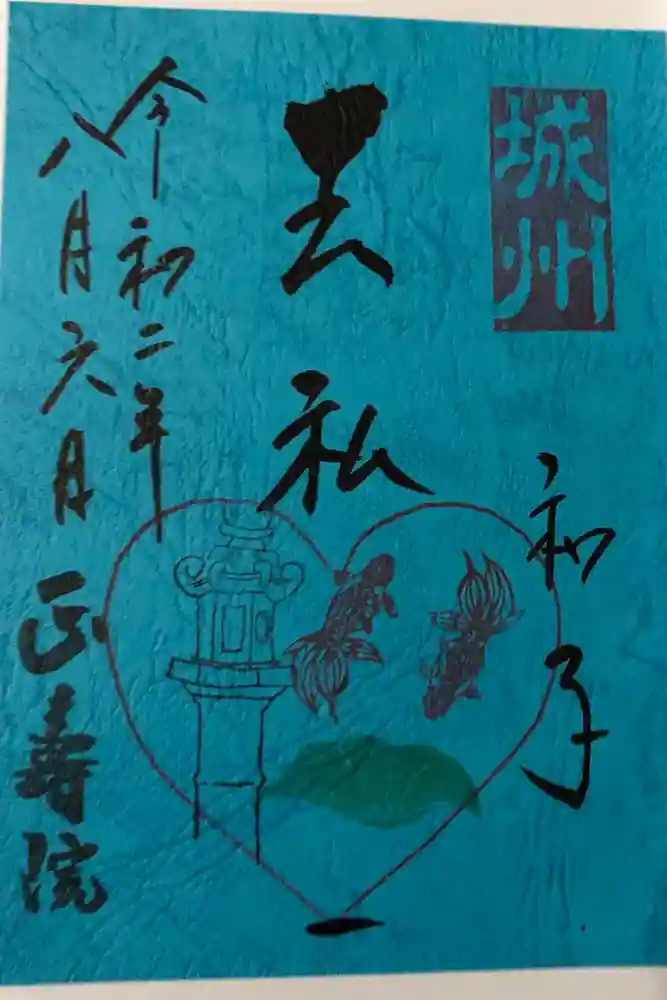 城州
和子
去私
令和二年
八月六日
正壽院